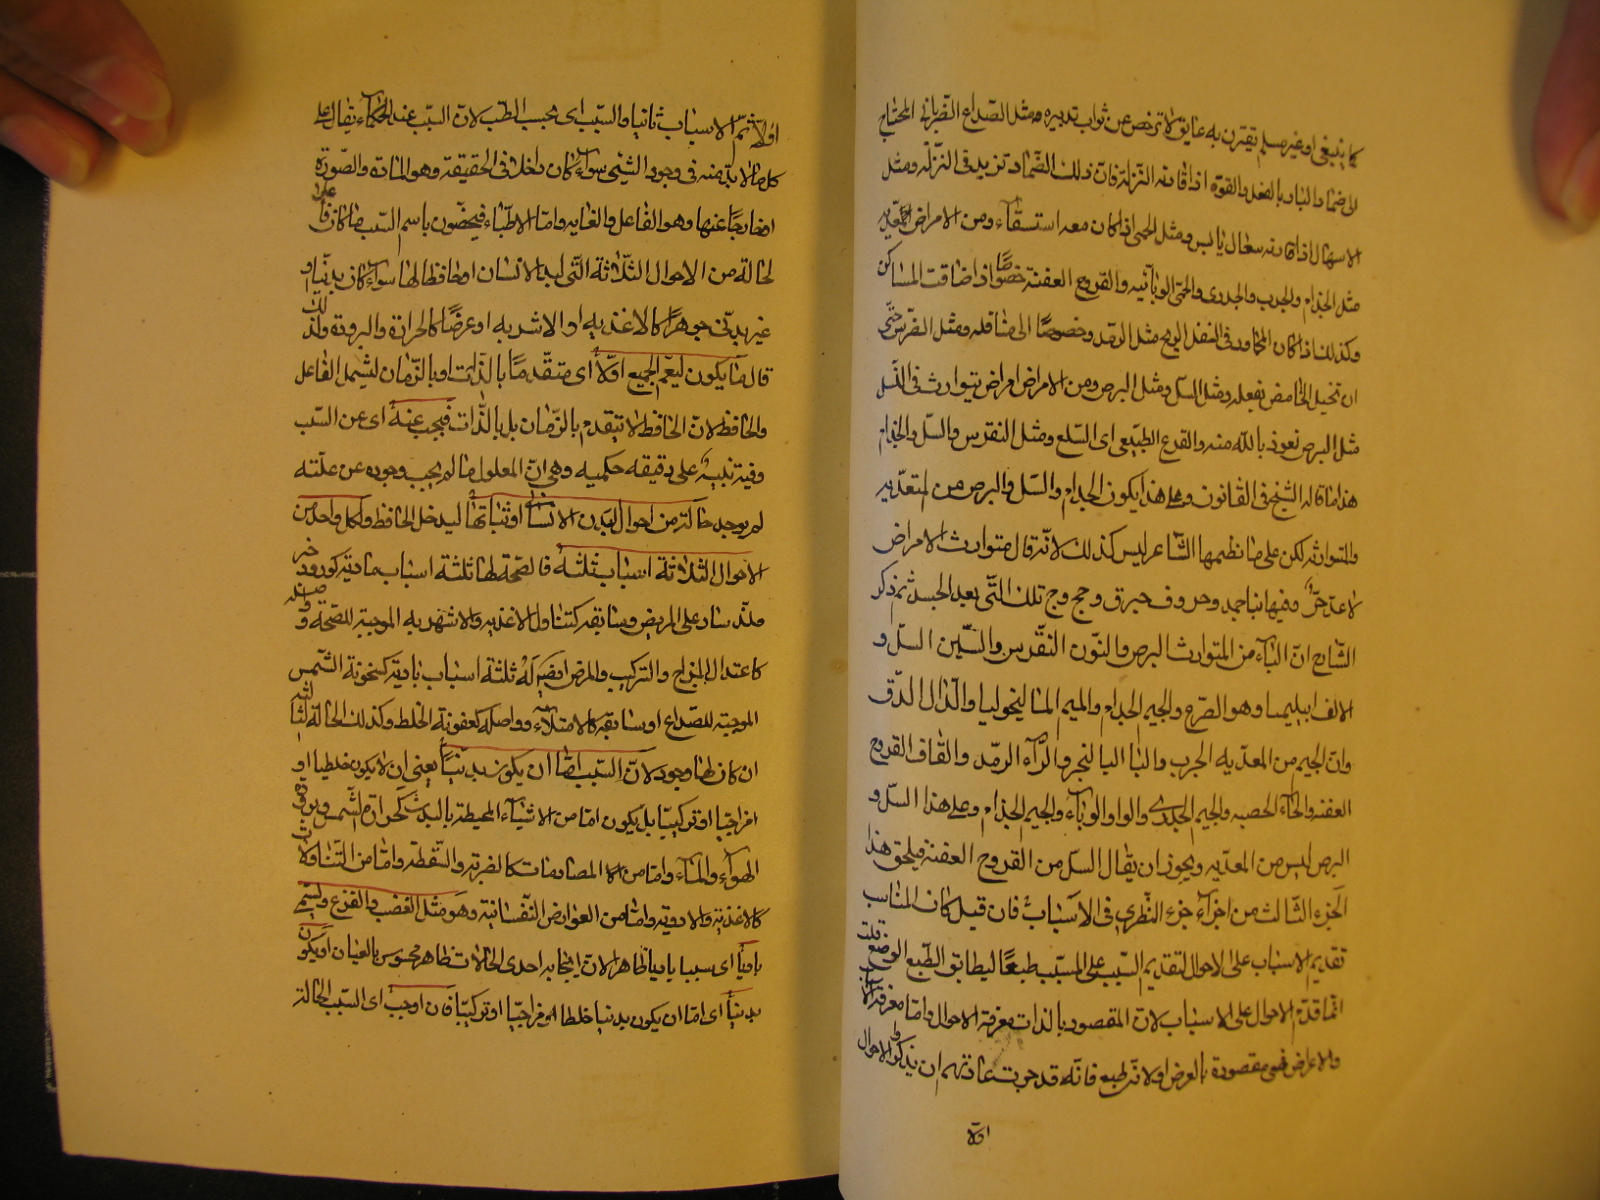 كما ينبغى او غير مسلم يقترن به عايق لا ترخص عن ثواب تدبيره مثل الصداع الضربانى المحتاج
الى ضماد البارد بالفعل والقوة اذا قارنه النزلة فان ذلك الضماد تزيد فى النزلة ومثل
الاسهال اذا قارنه سعال يابس ومثل الحمى اذا كان معه استسقاء ومن الامراض المعديه
مثل الجذام والجرب والجدرى والحمى الوبائيه والقروح العفنة خصوصًا اذا ضاقت المساكن
وكذلك اذا كان المجاور فى اسفل الريح مثل الرمد وخصوصًا الى متاقله ومثل الضرس حتى
ان تخيل الحامض يفعله ومثل السل ومثل البرص ومن الامراض امراض يتوارث فى النسل
مثل البرص نعوذ بالله منه والقرع الطبيعى اى السلع ومثل النقرس والسل والجذام
هذا ما قاله الشيخ فى القانون وعلى هذا يكون الجذام والسل والبرص من المتعديه
والمتوارثه لكن على ما نظمها الشاعر ليس كذلك لانه قال متوارث الامراض
ثم ذكر
الشارح ان الباء من المتوارث البرص والنون النقرس والسين السل و
الالف ابيليميا وهو الصرع والجيم الجذام والميم الماليخوليا والدال الدق
وان الجيم من المعديه الجرب والبا البا لنجر والراء الرمد والقاف القروح
العفنه والحاء الحصبه والجيم الجدرى والواو الوباء والجيم الجذام وعلى هذا السل و
البرص ليس من المعديه ويجوز ان يقال السل من القروح العفنه فيلحق هذا
الجزء الثالث من اجزاء جزء النظرى فى الاسباب فان قيل كان المناسب
تقديم الاسباب على الاحوال لتقديم السبب على المسبب طبعًا ليطابق الطبع الوضع قلت
انما قدم الاحوال على الاسباب لان المقصود بالذات معرفة الاحوال واما معرفة الاسباب
والاعراض فهى مقصودة بالعرض اولا نه لطبع فانه قد جرت عادتهم ان يذكروا الاحوال
اولا
اولا ثم الاسباب ثانيا والسبب اى بحسب الطب لان السبب عند الحكماء يقال على
كل ما لا بد منه فى وجود الشئ سواء كان داخلا فى الحقيقة وهو المادة والصورة
او خارجًا عنها وهو الفاعل والغايه واما الاطباء فيخصون باسم السبب ما كان فاعلا
لحالة من الاحوال الثلاثة التى لبدن الانسان او حافظا لها سواء كان بدنيا او
غير بدنى جوهرًا كالاغذيه او الاشربه او عرضًا كالحرارة والبرودة ولذلك
قال ما يكون ليعم الجميع اولًا اى متقدمًا بالذات او بالزمان لشمل الفاعل
والحافظ لان الحافظ لا يتقدم بالزمان بل بالذات فيجب عنه اى عن السبب
وفيه تنبيه على دقيقه حكميه وهى ان المعلول ما لم يجب وجوده عن علته
لم يوجد حالة من احوال البدن الانسانى او ثباتها ليدخل الحافظ ولكل واحد من
الاحوال الثلاثة اسباب ثلثة فالصحة لها ثلثة اسباب بادية كورود خبر
ملذ سار على المريض وسابقه كتناول الاغذيه والاشربه الموجبة للصحة و واصله
كاعتدال المزاج والتركيب والمرض ايضًا له ثلثة اسباب بادية كسخونة الشمس
الموجبة للصداع او سابقه كالامتلاء وواصله كعفونة الخلط وكذلك الحالة الثالثه
ان كان لها وجود لان السبب اما ان يكون بدنيًا يعنى ان لا يكون خلطيا او
مزاجيا او تركيبيا بل يكون اما من الاشياء المحيطة بالبدن كحرارة الشمس وبرودة
الهواء والماء واما من المصادمات كالضربة والسقطة واما من التناولات
كالاغذية والادوية واما من العوارض النفسانية وهو مثل الغضب والفزع ويسمى
باديًا اى سببا باديا ظاهرا لان ايجابه احدى الحالات ظاهر محسوس بالعيان او يكون
بدنيًا اى اما ان يكون بدنيا خلطا او مزاجيا او تركيبيا فان اوجب اى السبب الحالة